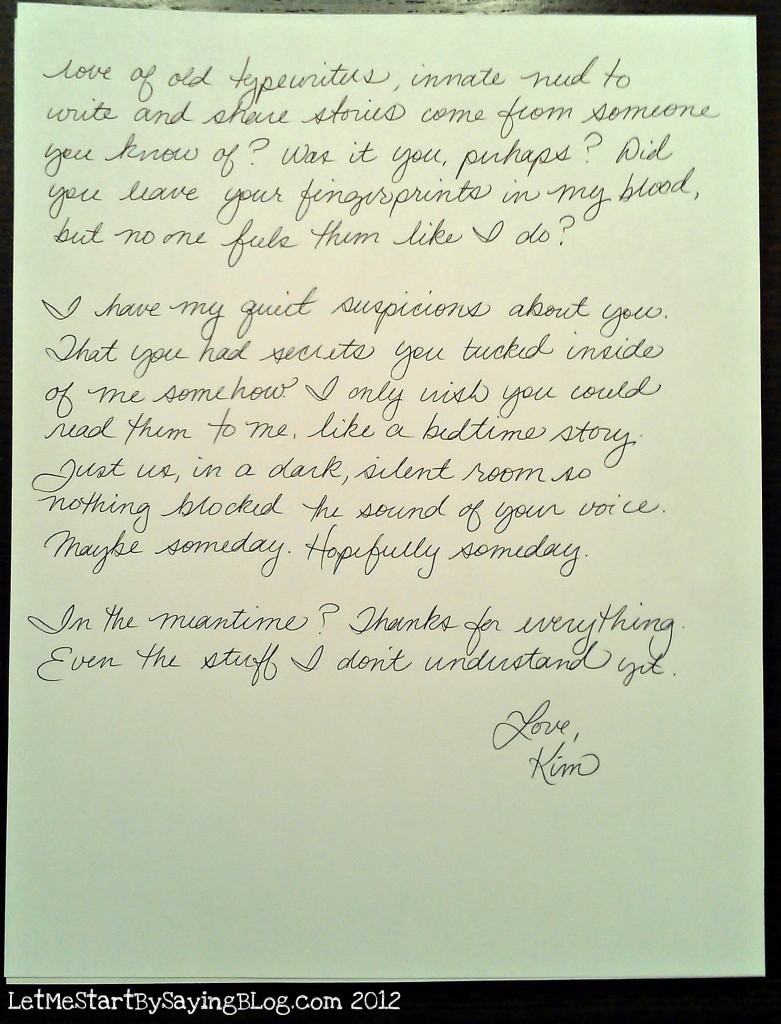 love of old typewriters, innate need to
write and share stories come from someone
you know of? Was it you, perhaps? Did
you leave your fingerprints in my blood,
but no one feels them like I do?
I have my quiet suspicions about you.
That you had secrets you tucked inside
of me somehow. I only wish you could
read them to me, like a bedtime story.
Just us, in a dark, silent room so
nothing blocked the sound of your voice.
Maybe someday. Hopefully someday.
In the meantime? Thanks for everything.
Even the stuff I don't understand yet.
Love,
Kim
LetMeStartBySayingBLog.com 2012